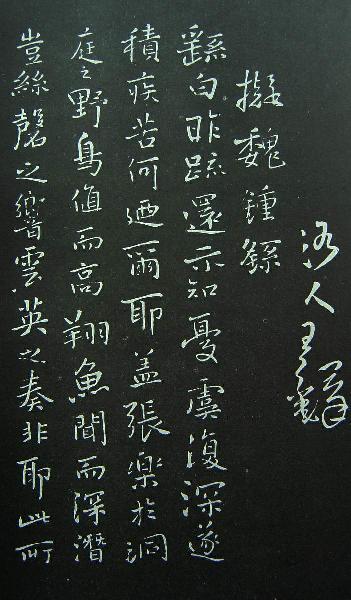 洛人王鐸
擬魏鍾繇
繇白昨疏還示知憂虞復深遂
積疾苦何迺爾耶蓋張樂於洞
庭之野鳥值而高翔魚聞而深潛
豈絲磬之響雲英之奏非耶此所